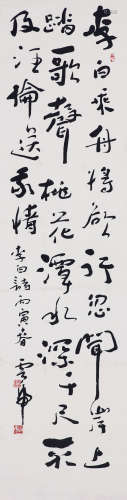 李白乘舟將欲行忽聞岸上
踏歌聲桃花潭水深千尺不
及汪倫送我情李白詩丙寅春